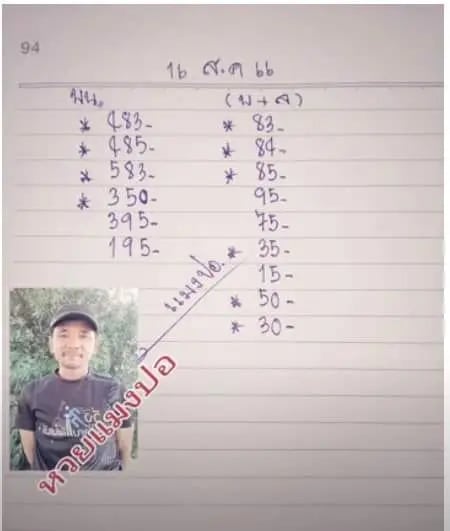 94
16 ส.ค 66
บน.
(บ+ล)
* 483-
* 485-
* 583-
* 350-
395-
195-
* 83-
* 84-
* 85-
95-
75-
* 35-
15-
* 50-
* 30-
แมงปอ.
หวยแมงปอ